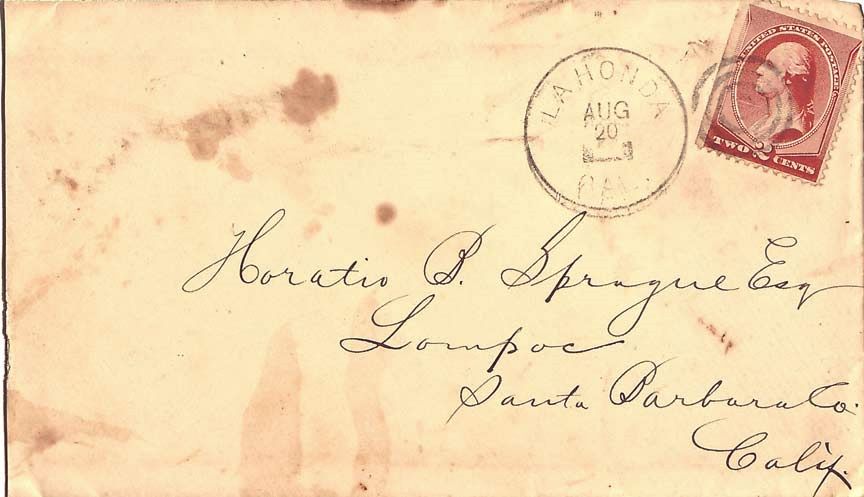 UNITED STATES POSTAGE
TWO 2 CENTS
LA HONDA
AUG
20
CAL.
Horatio B. Sprague Esq
Lompoc
Santa Barbara Co.
Calif.